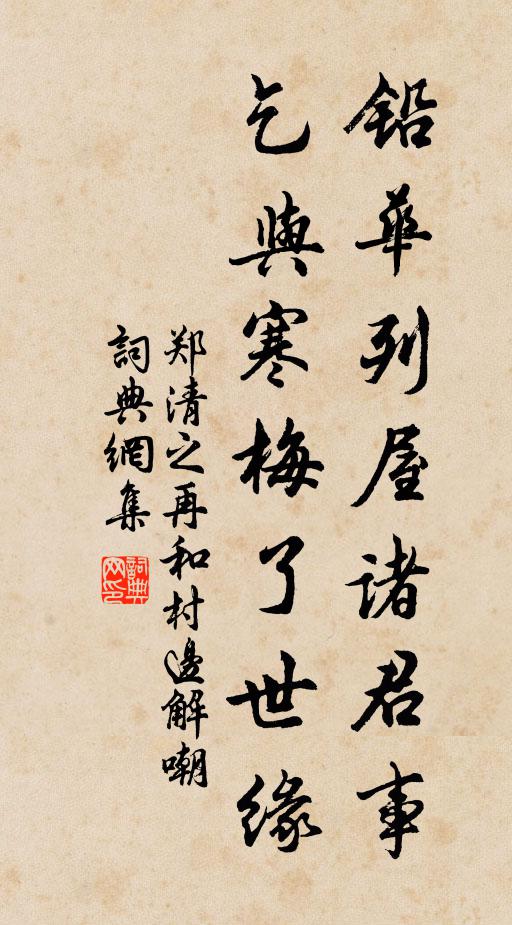 鉛華列屋諸君事
乞與寒梅了世緣
郑清之再和村邊解嘲
詞典網集
詞典网印